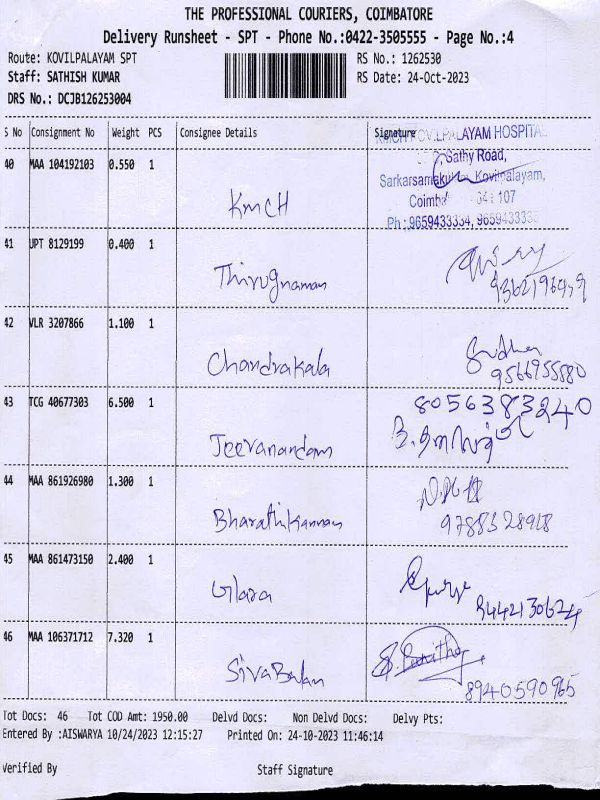 THE PROFESSIONAL COURIERS, COIMBATORE
Delivery Runsheet - SPT - Phone No.:0422-3505555 - Page No.:4
Route: KOVILPALAYAM SPT RS No.: 1262530
Staff: SATHISH KUMAR RS Date: 24-Oct-2023
DRS No.: DCJB126253004
S No Consignment No Weight PCS Consignee Details Signature
40 MAA 104192103 0.550 1 KMCH
KOVILPALAYAM HOSPITAL
Sathy Road,
Kovilpalayam,
107
Ph : 9659433334, 9659433333
41 UPT 8129199 0.400 1 Thirugnanam
42 VLR 3207866 1.100 1 Chandrakala
9566955580
43 TCG 40677303 6.500 1 Jeevanandam
8056383240
44 MAA 861926980 1.300 1 Bharathikannan
9788528918
45 MAA 861473150 2.400 1
9442130624
46 MAA 106371712 7.320 1 SivaBalan
8940590965
Tot Docs: 46 Tot COD Amt: 1950.00 Delvd Docs: Non Delvd Docs: Delvy Pts:
Entered By :AISWARYA 10/24/2023 12:15:27 Printed On: 24-10-2023 11:46:14
Verified By Staff Signature